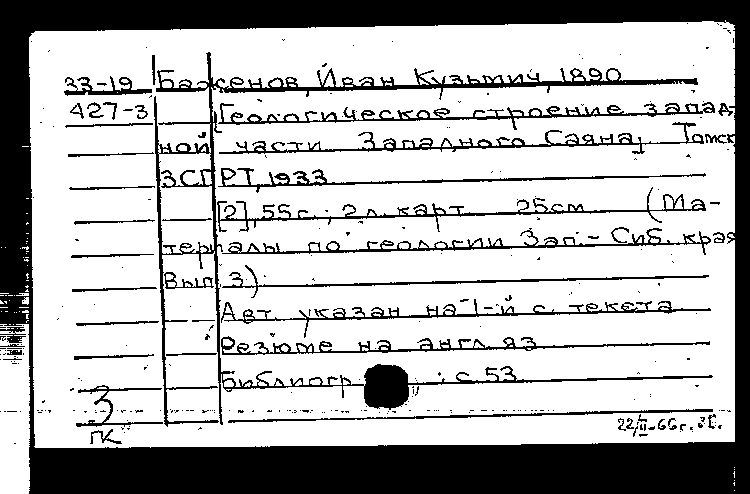 33-19 Баженов, Иван Кузьмич, 1890
427-3 [Геологическое строение запад-
ной части Западного Саяна] Томск
ЗСГРТ, 1933
[2], 55 с.; 2 л. карт 25 см (Ма-
териалы по геологии Зап.- Сиб. края
Вып 3)
Авт. указан на 1-й с. текста
Резюме на англ яз
Библиогр : с. 53
3
ГК
22/II-66г.